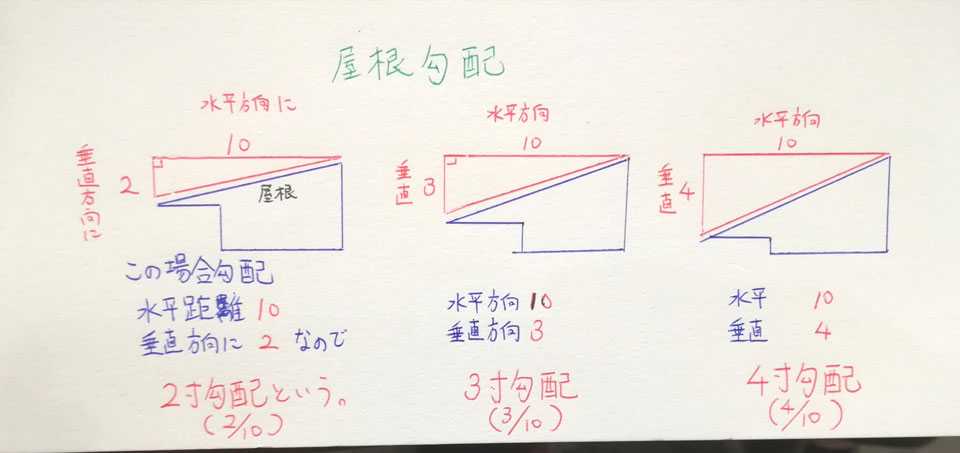 屋根勾配
水平方向に
10
垂直方向に
2
屋根
この場合勾配
水平距離 10
垂直方向に 2 なので
2寸勾配という。
(2/10)
水平方向
10
垂直
3
水平方向 10
垂直方向 3
3寸勾配
(3/10)
水平方向
10
垂直
4
水平 10
垂直 4
4寸勾配
(4/10)